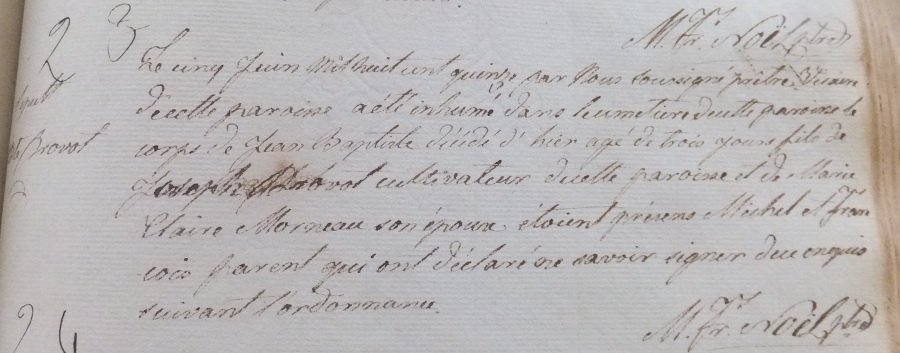 M. Fr. Noël ptre
2 3
Le cinq Juin Mil huit cent quinze par Nous soussigné prêtre Vicaire
Sepult
decette paroisse a eté inhumé dans lecimetiere decette paroisse le
Bte Provot
corps de Jean Baptiste décédé d'hier agé de trois jours fils de
Joseph Provot cultivateur decette paroisse et de Marie
Claire Morneau son épouse, étoient présens Michel & Fran
cois parent qui ont déclaré ne savoir signer de ce enquis
suivant l'ordonnance.
M. Fr. Noël ptre
2 4